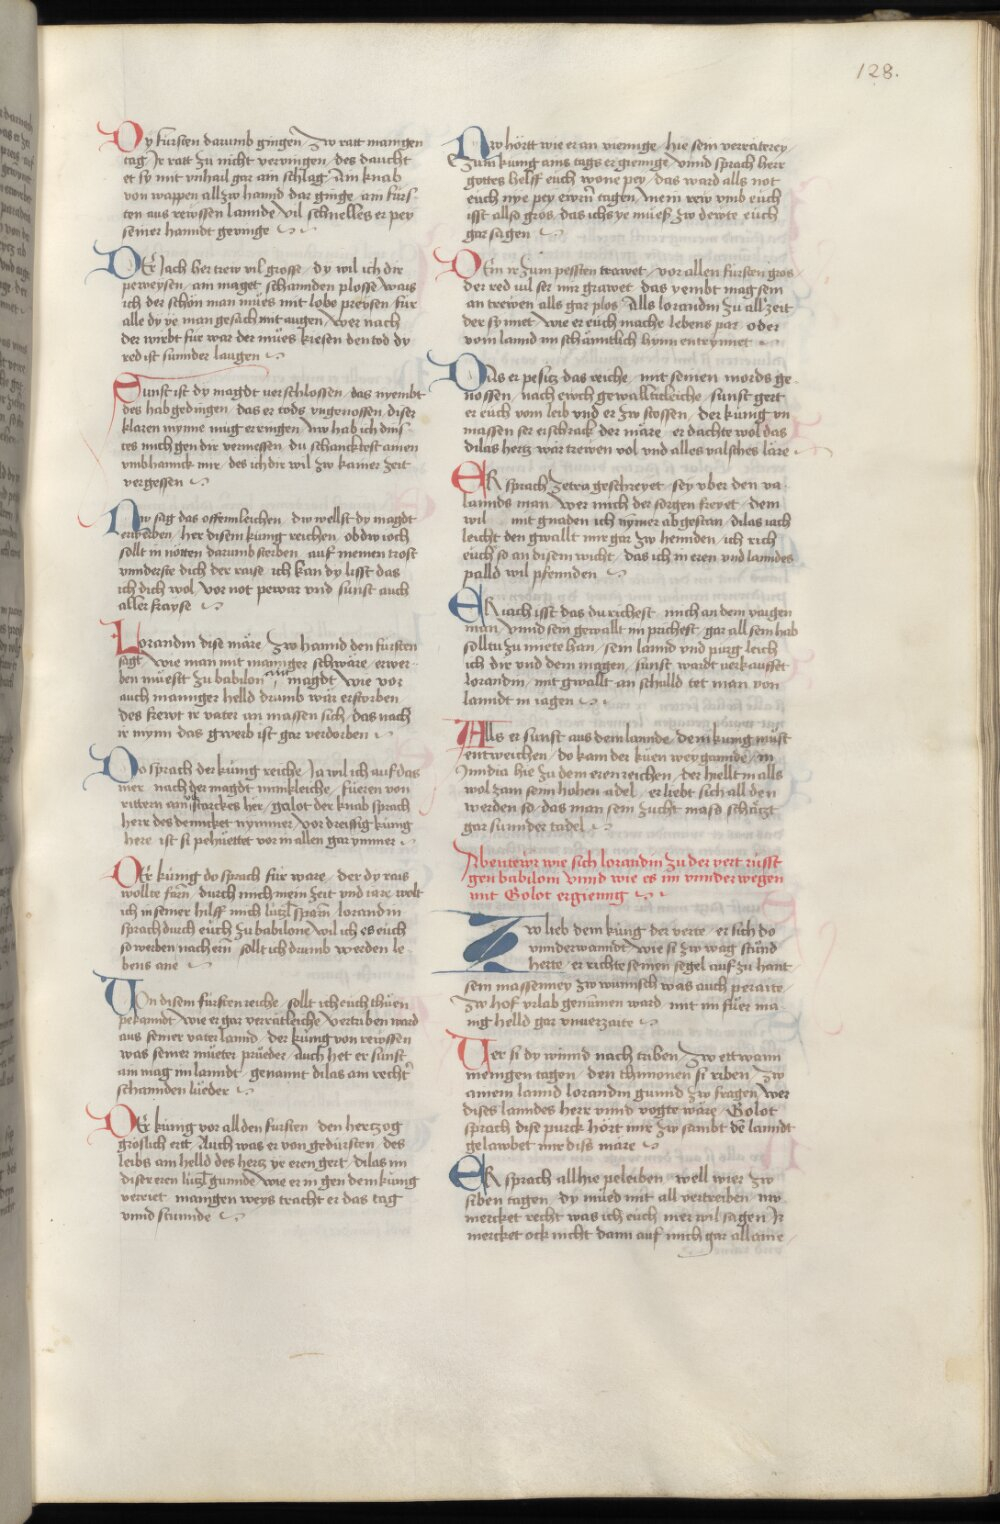 128.
Dy fursten darumb gingen Zw ratt mangen
tag Ir ratt zu nicht vervingen des daucht
et sy mit vnhail gar ain schlag Ain knab
von wappen all zw hannd dar ginge ain furs
ten aus rewssen lannde vil schnelles er pey
seiner hanndt gevinge
Er Jach her trew vil grosse dy wil ich dir
peweysen ain maget schannden plosse wais
ich der schon man mues mit lobe preysen fur
alle dy ye man gesach mit augen Wer nach
der wirbt fur war der mues kiesen den tod dy
red ist sunnder laugen
Sunst ist dy magdt verschlossen das nyembt
des hab gedingen das er tods vngenossen diser
klaren mynne mug erringen Nw hab ich dins
tes mich gen dir vermessen du schancktest ainen
vmbhannck mir des ich dir wil zw kainer zeit
vergessen
Nw sag das offennleichen dw wellst dy magdt
erwerben her disem kung reichen ob dw ioch
sollt in notten darumb sterben auf meinen trost
vnnderste dich der raise ich kan dy lisst das
ich dich wol vor not pewar vnd sunst auch
aller frayse
Lorandin dise mare Zw hannd den fursten
sagt wie man mit manniger schware erwer
ben muestt zu babilon ain magdt wie vor
auch manniger helld drumb war erstorben
des frewt ir vater an massen sich das nach
ir mynn das gwerb ist gar verdorben
Do sprach der kung reiche Ja wil ich auf das
mer nach der magdt minnkleiche fueren von
rittern ain starckes her galot der knab sprach
herr des dencket nymmer vor dreissig kung
here ist si pehuettet vor in allen gar ymmer
Der kung do sprach fur ware der dy rais
wollte farn durch mich mein zeit vnd iare welt
ich in seiner hilff mich lutzl sparn lorandin
sprach durch euch zu babilone wil ich es euch
so werben nach ern sollt ich drumb werden le
bens ane
Von disem fursten reiche sollt ich euch thuen
pekanndt wie er gar verratleiche vertriben ward
aus seiner vater lannd der kung von rewssen
was seiner mueter prueder auch het er sunst
ain mag im lanndt genannt dilas ain rechter
schannden lueder
Der kung vor all den fursten den hertzog
groslich ertt Auch was er von gedursten des
leibs ain helld des hertz ye eren gert dilas im
diser eren lutzl gunnde wie er in gen dem kung
verriet manngen weys tracht er das tag
vnnd stunnde
Nw hortt wie er an vienige hie sein verraterey
Zum kung ains tags er gienge vnnd sprach herr
gottes helff euch wone pey das ward alls not
euch nye pey ewrn tagen Mein rew vmb euch
isst allso gros das ich sye mues zw dewte euch
gar sagen
Dem ir zum pessten trawet vor allen fursten gros
der red vil ser mir grawet das yembt mag sein
an trewen alls gar plos Alls lorandin zu all zeit
der synnet wie er euch mache lebens par oder
vom lannd im schanntlich hynn entrynnet
Das er pesitz das reiche mit seinen mords ge
nossen nach euch gewalltickleiche sunst gert
er euch vom leib vnd er zw stossen der kung vn
massen ser erschrack der mare er dachte wol das
dilas hertz war trewen vol vnd alles valsches lare
Er sprach Zetra geschreyet sey vber den va
lannds man Wer mich der sorgen freyet dem
wil mit gnaden ich nymer abgestan dilas iach
leicht den gwallt mir gar zw hennden ich rich
euch so an disem wicht das ich in eren vnd lanndes
palld wil pfennden
Er iach isst das du richest mich an dem vaigen
man vnnd sein gewallt im prichest gar all sein hab
solltu zu miete han sein lannd vnd purg leich
ich dir vnd dem magen sunst wardt verkausset
lorandin mit gwallt an schulld tet man von
lanndt in iagen
Alls er sunst aus dem lannde dem kung must
entweichen do kam der kuen weygannde in
Inndia hie zu dem eren reichen der hiellt in alls
wol zam seim hohen adel er liebt sich all den
werden so das man sein zucht mass schatzt
gar sunnder tadel
Abentewr wie sich lorandin zu der vert russt
gen babiloni vnnd wie es im vnnder wegen
mit Golot ergienng
Zw lieb dem kung der verte er sich do
vnnderwanndt wie si zw wag stund
herte er richte seinen segel auf zu hant
sein massenney zw wunnsch was auch peraite
Zw hof vrlab genumen ward mit im fuer ma
nig helld gar vnuerzaite
Ver si dy winnd nach triben Zw ettwann
meingen tagen den thimonen si riben zw
ainem lannd lorandin gunnd zw fragen wer
dises lanndes herr vnnd vogte ware Golot
sprach dise purck hort mir zw sambt dem lanndt
gelawbet mir diss mare
Er sprach allhie peleiben well wier zw
siben tagen dy mued mit all vertreiben nw
mercket recht was ich euch mer wil sagen Ir
mercket ock nicht dann auf mich gar allaine